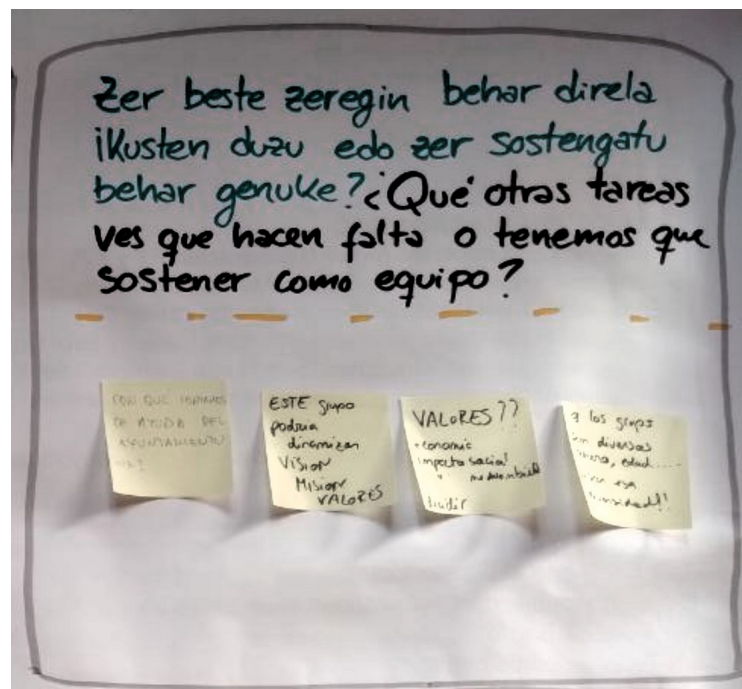 Zer beste zeregin behar direla
ikusten duzu edo zer sostengatu
behar genuke? ¿Qué otras tareas
ves que hacen falta o tenemos que
sostener como equipo?
CON QUE
DE AYUDA DEL
AYUNTAMIENTO
ESTE grupo
podria
dinamizar
VISION
MISION
VALORES
VALORES??
economic
impacto social
"
3 los grups
diversas
edad.....
esa